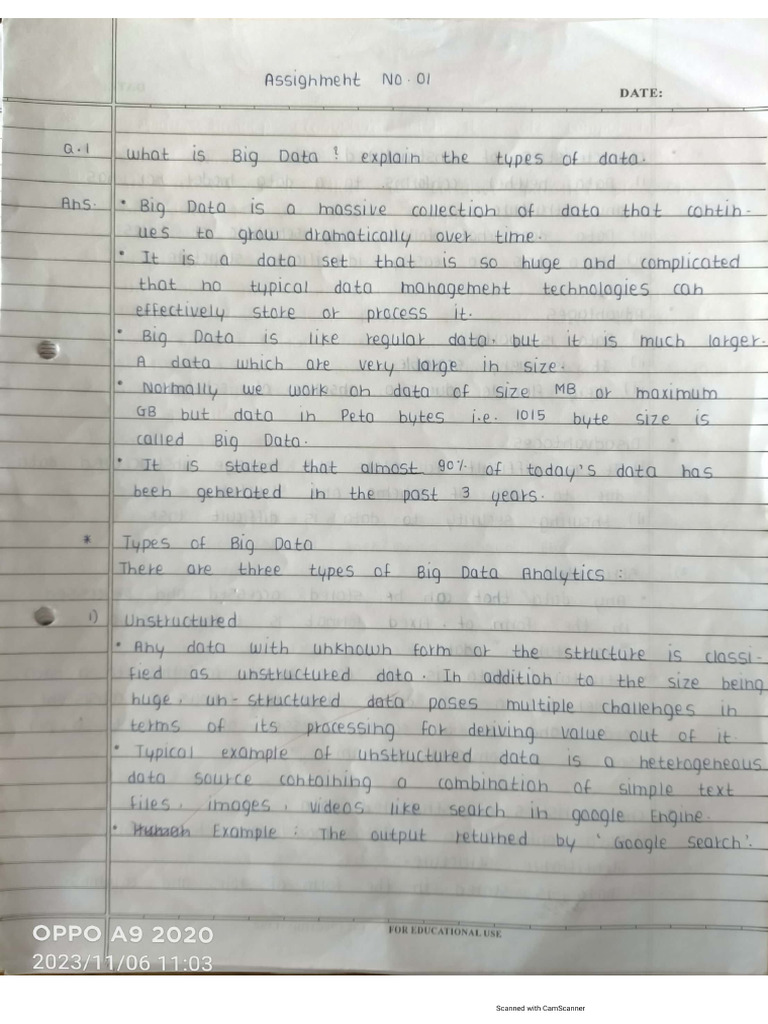 Assignment No. 01
DATE:
Q.1 What is Big Data? explain the types of data.
Ans. • Big Data is a massive collection of data that contin-
ues to grow dramatically over time.
• It is a data set that is so huge and complicated
that no typical data management technologies can
effectively store or process it.
• Big Data is like regular data, but it is much larger.
A data which are very large in size.
• Normally we work on data of size MB or maximum
GB but data in Peta bytes i.e. 1015 byte size is
called Big Data.
• It is stated that almost 90% of today's data has
been generated in the past 3 years.
* Types of Big Data
There are three types of Big Data Analytics :
i) Unstructured
• Any data with unknown form or the structure is classi-
fied as unstructured data. In addition to the size being
huge, un-structured data poses multiple challenges in
terms of its processing for deriving value out of it.
• Typical example of unstructured data is a heterogeneous
data source containing a combination of simple text
files, images, videos like search in google Engine.
• Example : The output returned by 'Google Search'.
FOR EDUCATIONAL USE
OPPO A9 2020
2023/11/06 11:03
Scanned with CamScanner